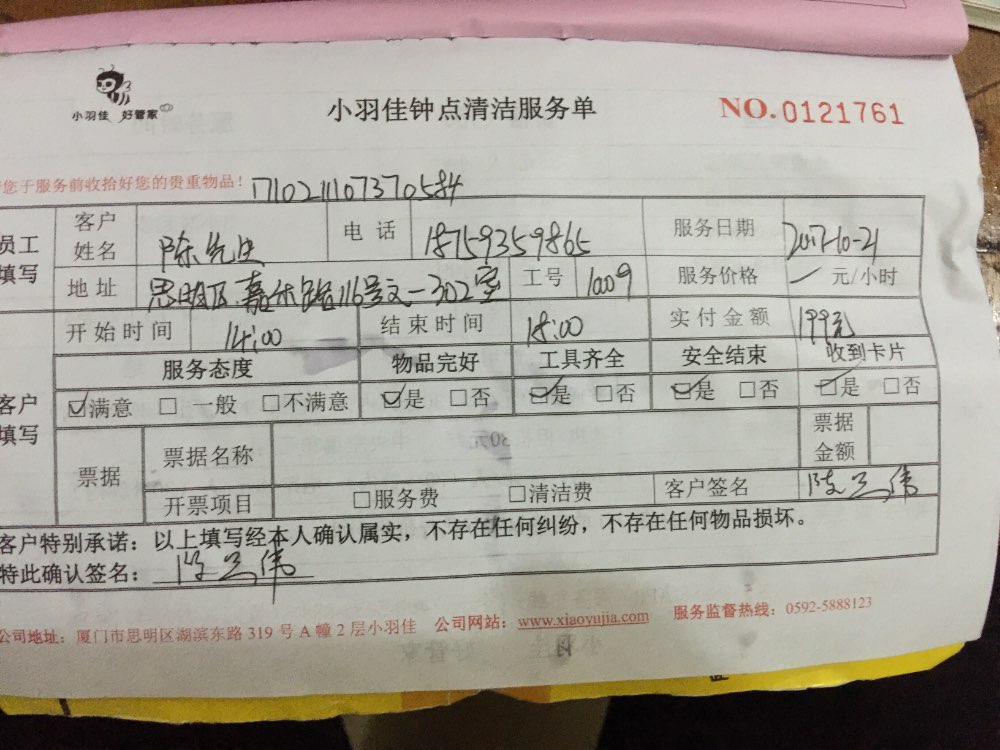 小羽佳 好管家
小羽佳钟点清洁服务单
NO.0121761
您于服务前收拾好您的贵重物品！ 171021107370584
员工填写 客户姓名 陈先生 电话 18759359865 服务日期 2017-10-21
地址 思明区嘉禾路116号之一302室 工号 1009 服务价格 一 元/小时
开始时间 14:00 结束时间 18:00 实付金额 199元
客户填写 服务态度 物品完好 工具齐全 安全结束 收到卡片
☑满意 □一般 □不满意 ☑是 □否 ☑是 □否 ☑是 □否 ☑是 □否
票据 票据名称 票据金额
开票项目 □服务费 □清洁费 客户签名
客户特别承诺：以上填写经本人确认属实，不存在任何纠纷，不存在任何物品损坏。
特此确认签名：
公司地址：厦门市思明区湖滨东路 319 号 A 幢 2 层小羽佳 公司网站：www.xiaoyujia.com 服务监督热线：0592-5888123